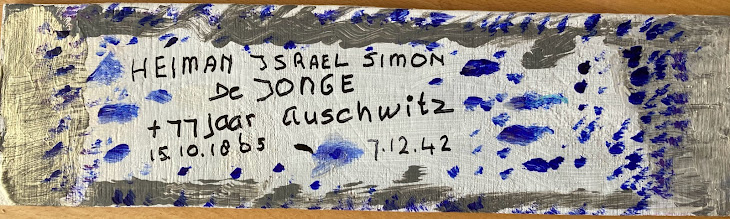 HEIMAN ISRAEL SIMON
De JONGE
+ 77 jaar auschwitz
15.10.1865 7.12.42